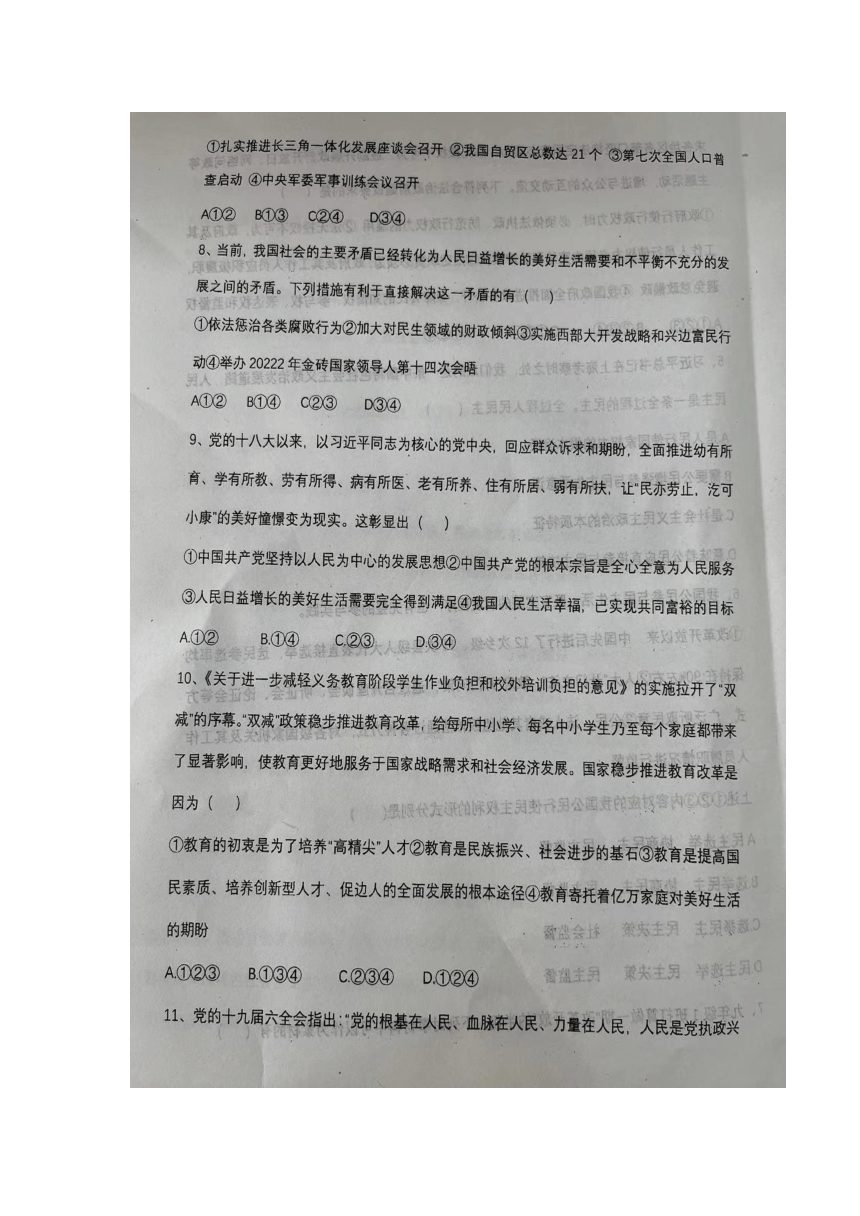 ①扎实推进长三角一体化发展座谈会召开 ②我国自贸区总数达 21 个 ③第七次全国人口普
查启动 ④中央军委军事训练会议召开
A①② B①③ C②④ D③④
8、当前, 我国社会的主要矛盾已经转化为人民日益增长的美好生活需要和不平衡不充分的发
展之间的矛盾。下列措施有利于直接解决这一矛盾的有 ( )
①依法惩治各类腐败行为②加大对民生领域的财政倾斜③实施西部大开发战略和兴边富民行
动④举办 20222 年金砖国家领导人第十四次会晤
A①② B①④ C②③ D③④
9、党的十八大以来, 以习近平同志为核心的党中央, 回应群众诉求和期盼, 全面推进幼有所
育、学有所教、劳有所得、病有所医、老有所养、住有所居、弱有所扶, 让“民亦劳止, 汔可
小康”的美好憧憬变为现实。这彰显出 ( )
①中国共产党坚持以人民为中心的发展思想②中国共产党的根本宗旨是全心全意为人民服务
③人民日益增长的美好生活需要完全得到满足④我国人民生活幸福, 已实现共同富裕的目标
A.①② B.①④ C.②③ D.③④
10、《关于进一步减轻义务教育阶段学生作业负担和校外培训负担的意见》的实施拉开了“双
减”的序幕。“双减”政策稳步推进教育改革, 给每所中小学、每名中小学生乃至每个家庭都带来
了显著影响, 使教育更好地服务于国家战略需求和社会经济发展。国家稳步推进教育改革是
因为 ( )
①教育的初衷是为了培养“高精尖”人才②教育是民族振兴、社会进步的基石③教育是提高国
民素质、培养创新型人才、促边人的全面发展的根本途径④教育寄托着亿万家庭对美好生活
的期盼
A.①②③ B.①③④ C.②③④ D.①②④
11、党的十九届六全会指出: “党的根基在人民、血脉在人民、力量在人民, 人民是党执政兴